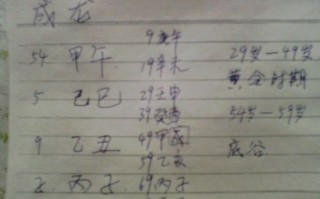 成龙
9庚午
54 甲午 19辛未 29岁—49岁
黄金时期
5 己巳 29壬申
39癸酉 54岁—59岁
9 乙丑 49甲戌 底谷
59乙亥
丙子 69丙子